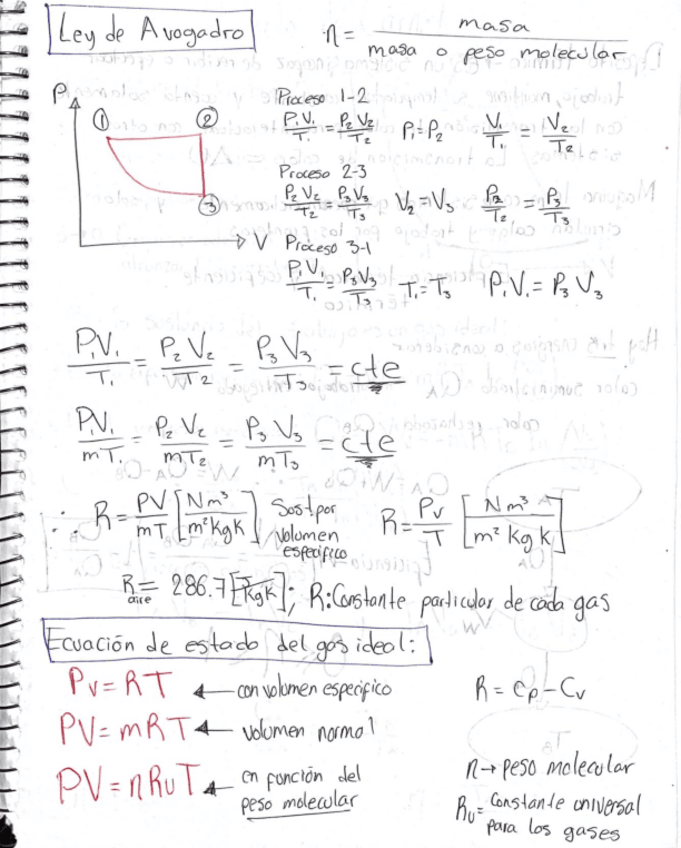 Ley de Avogadro
n = masa / masa o peso molecular
P
① ②
③
V
Proceso 1-2
P₁V₁/T₁ = P₂V₂/T₂ P₁=P₂ V₁/T₁ = V₂/T₂
Proceso 2-3
P₂V₂/T₂ = P₃V₃/T₃ V₂=V₃ P₂/T₂ = P₃/T₃
Proceso 3-1
P₁V₁/T₁ = P₃V₃/T₃ T₁=T₃ P₁V₁ = P₃V₃
P₁V₁/T₁ = P₂V₂/T₂ = P₃V₃/T₃ = cte
P₁V₁/mT₁ = P₂V₂/mT₂ = P₃V₃/mT₃ = cte
∴ R = PV/mT [Nm³/m²kgK] Sost por volumen especifico R = Pv/T [Nm³/m²kgK]
R aire = 286.7 [J/kgK]; R: Constante particular de cada gas
Ecuación de estado del gas ideal:
Pv = RT ← con volumen especifico R = Cp - Cv
PV = mRT ← volumen normal
PV = nRuT ← en función del peso molecular
n → peso molecular
Ru = Constante universal para los gases